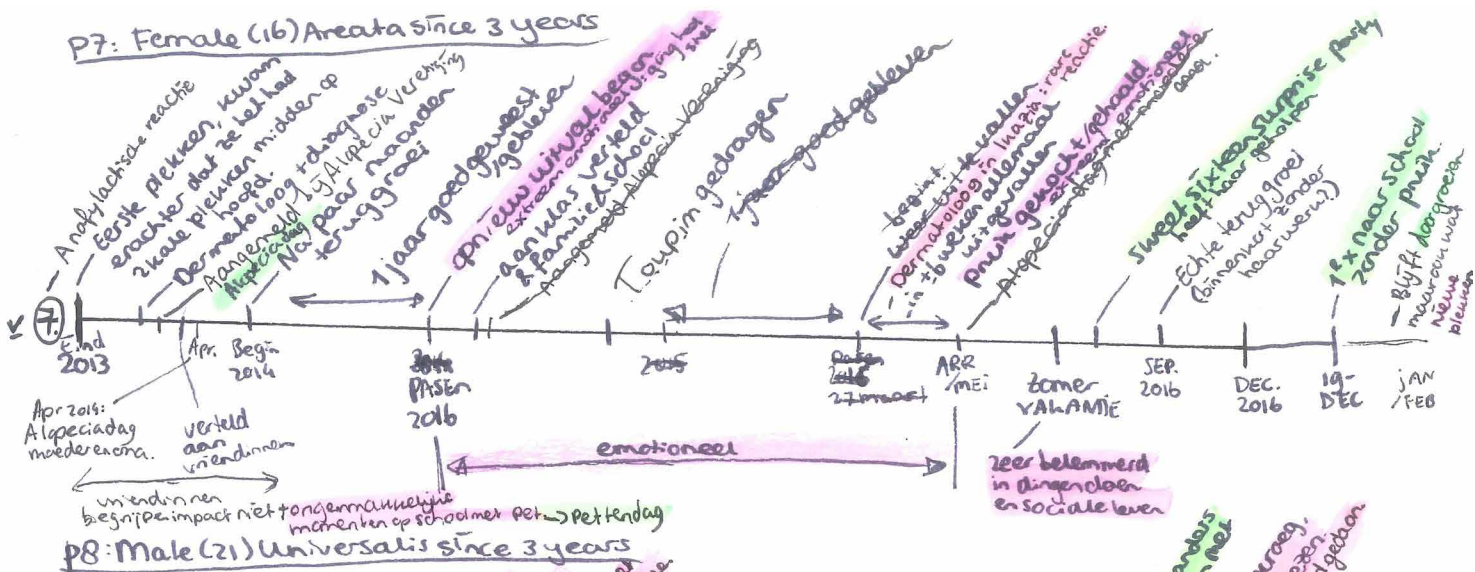 P7: Female (16) Areata since 3 years
Anafylactische reactie
Eerste plekken, kwam
erachter dat ze het had
2 kale plekken midden op
hoofd.
Dermatoloog + diagnose
Aangemeld bij Alopecia Vereniging
Alopeciadag
Na paar maanden
teruggroei
1 jaar goed geweest
/gebleven
opnieuw uitval begon
extreem emotioneel
aan klas verteld
& familie & school
Aangemeld Alopecia Vereniging
Toupin gedragen
1 jaar goed gebleven
begint
weer uit te vallen
Dermatoloog in : rare
reactie.
- in ± 6 weken allemaal
uitgevallen
pruik gekocht/gehaald
extreem emotioneel
Alopeciandag met
sweet sixteen surprise party
heeft haar geholpen
Echte terug groei
(binnenkort zonder
haarwerk))
1e x naar school
zonder pruik.
- Blijft doorgroeien
maar ook wat
nieuwe
plekken
7.
eind
2013
Apr.
Begin
2014
PASEN
2016
2015
Pasen
2016
27 maart
APR
/MEI
Zomer
VAKANTIE
SEP.
2016
DEC.
2016
19-
DEC
JAN
/FEB
Apr 2014:
Alopeciadag
moeder en oma.
verteld
aan
vriendinnen
vriendinnen
begrijpen impact niet + ongemakkelijke
momenten op school met pet -> pettendag
emotioneel
zeer belemmerd
in dingen doen
en sociale leven
P8: Male (21) Universalis since 3 years
anders
met